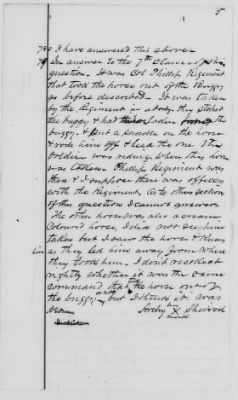 5
78 I have answered this above.
79 In answer to the 7th clause of this
question. It was Col Phillips Regiment
that took the horse out of the Buggy
as before described. It was taken
by the Regiment in a body they stopped
the buggy & had ladies
buggy. & put a saddle on the horse
& rode him off & lead the one the
soldier was riding when this horse
was taken. Phillips Regiment was
there & I suppose there was officers
with the Regiment. As to other action
of the question I cannot answer.
The other horse was also a cream
colored horse, I did not see him
taken but I saw the horse & knew
him as they led him away from where
they took him. I dont recollect
rightly whether it was the same
command that the horse out of
the buggy but I think it was
his
X Sherrod
mark